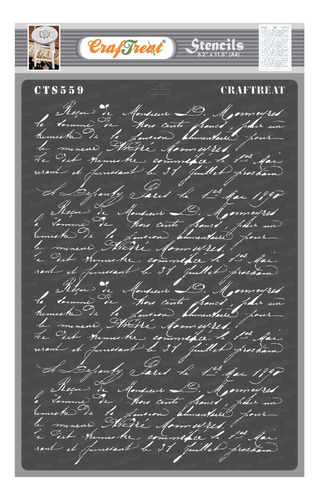 CrafTreat
Stencils
8.2" x 11.6" (A4)
CTS559
CRAFTREAT
Reçu de Monsieur D. Monmeyres
la somme de trois cents francs pour un
trimestre de la pension alimentaire pour
le mineur André Monmeyres
Le dit trimestre commence le 1er Mai
et finissant le 31 juillet prochain
Paris le 1er Mai 1890
Reçu de Monsieur D. Monmeyres
la somme de trois cents francs pour un
trimestre de la pension alimentaire pour
le mineur André Monmeyres
Le dit trimestre commence le 1er Mai
et finissant le 31 juillet prochain
Reçu de Monsieur D. Monmeyres
la somme de trois cents francs pour un
trimestre de la pension alimentaire pour
le mineur André Monmeyres
Le dit trimestre commence le 1er Mai
et finissant le 31 juillet prochain
Paris le 1er Mai 1890
Reçu de Monsieur D. Monmeyres
la somme de trois cents francs pour un
trimestre de la pension alimentaire pour
le mineur André Monmeyres
Le dit trimestre commence le 1er Mai
et finissant le 31 juillet prochain